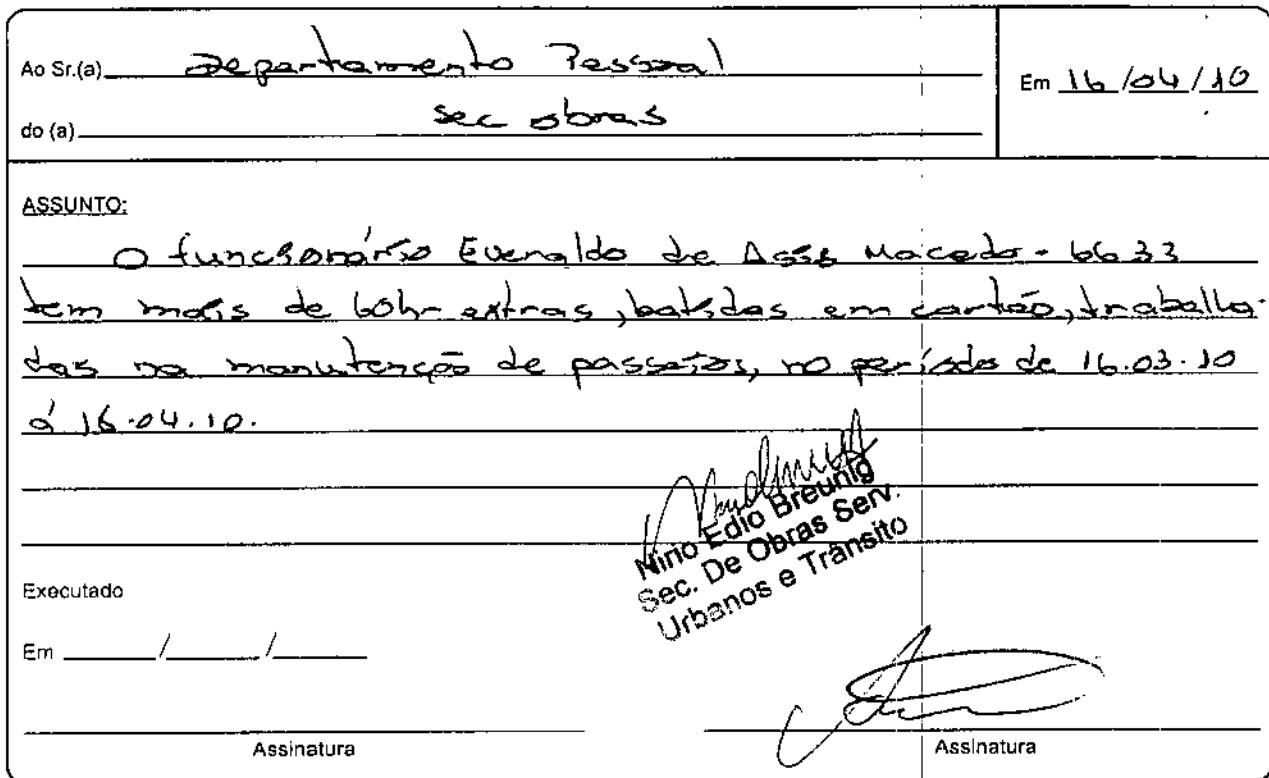 Ao Sr.(a) Departamento Pessoal
Em 16/04/10
do (a) Sec obras
ASSUNTO:
O funcionário Evenaldo de Assis Macedo - 6633
tem mais de 60hr extras, batidas em cartão, trabalha-
das na manutenção de passeios, no período de 16.03.10
á 16.04.10.
Nirio Edio Breunig
Sec. De Obras Serv.
Urbanos e Trânsito
Executado
Em ____/____/____
Assinatura
Assinatura